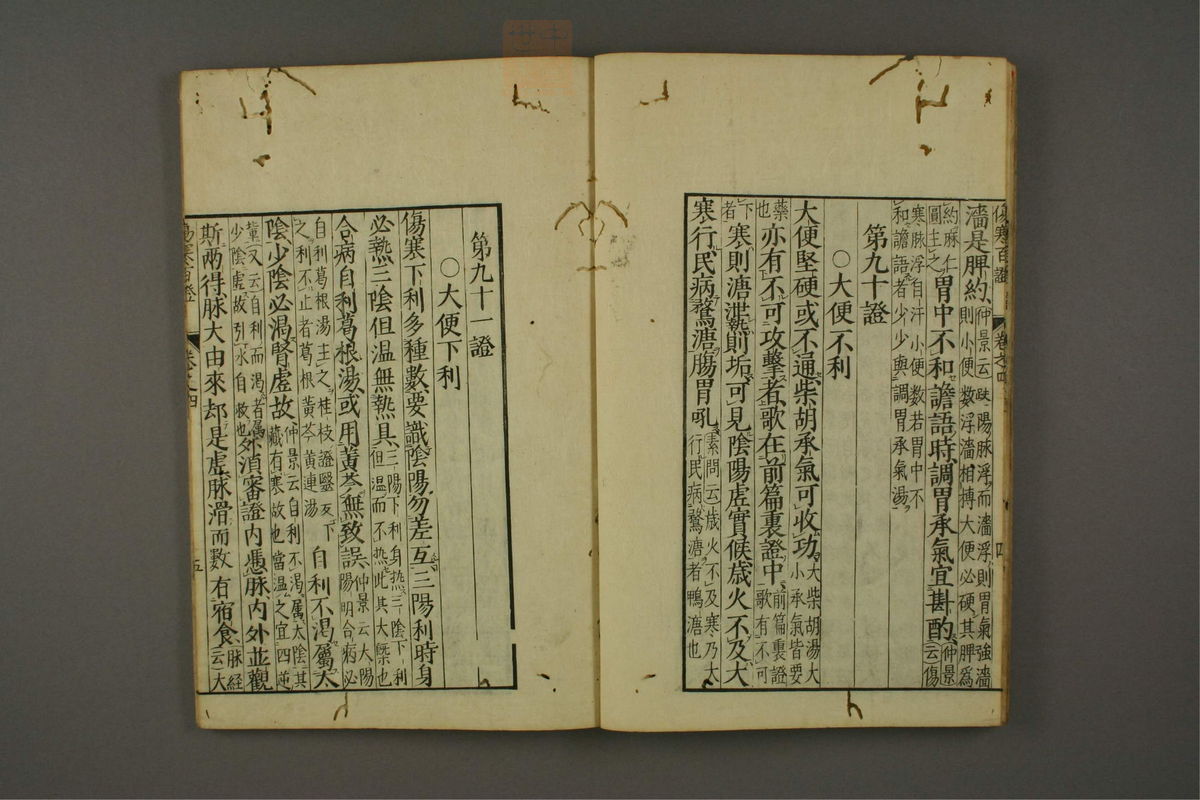 傷寒百證 卷之四 四
濇是脾約仲景云趺陽脉浮而濇浮則胃氣強濇
則小便數浮濇相搏大便必硬其脾爲
約麻仁
圓主之胃中不和譫語時調胃承氣宜斟酌仲景
云傷
寒脉浮自汗小便數若胃中不
和譫語者少少與調胃承氣湯
第九十證
○大便不利
大便堅硬或不通柴胡承氣可收功大柴胡湯大
小承氣皆要
藥
也亦有不可攻擊者歌在前篇裏證中前篇裏證
歌有不可
下
者寒則溏泄熱則垢可見陰陽虛實候歲火不及大
寒行民病鶩溏腸胃吼素問云歲火不及寒乃大
行民病鶩溏者鴨溏也
第九十一證
○大便下利
傷寒下利多種數要識陰陽勿差互三陽利時身
必熱三陰但温無熱具三陽下利身热三陰下利
但温而不热此其大槩也
合病自利葛根湯或用黄芩無致誤仲景云大陽
陽明合病必
自利葛根湯主之桂枝證醫反下
之利不止者葛根黄芩黄連湯自利不渴屬太
陰少陰必渴腎虛故仲景云自利不渴屬太陰其
藏有寒故也當温之宜四逆
輩又云自利而渴者屬
少陰虛故引水自救也外須審證内憑脉内外並觀
斯兩得脉大由來却是虛脉滑而數有宿食脉経
云大
傷寒百證 卷之四 五